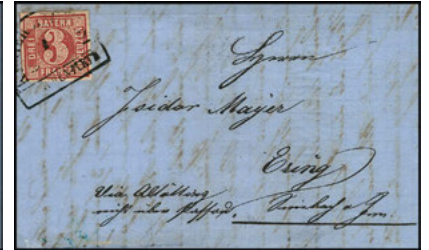 BAYERN
DREI
3
Herrn
Isidor Mayer
Ering
Via Altötting
nicht über Passau. Simbach a/Inn.